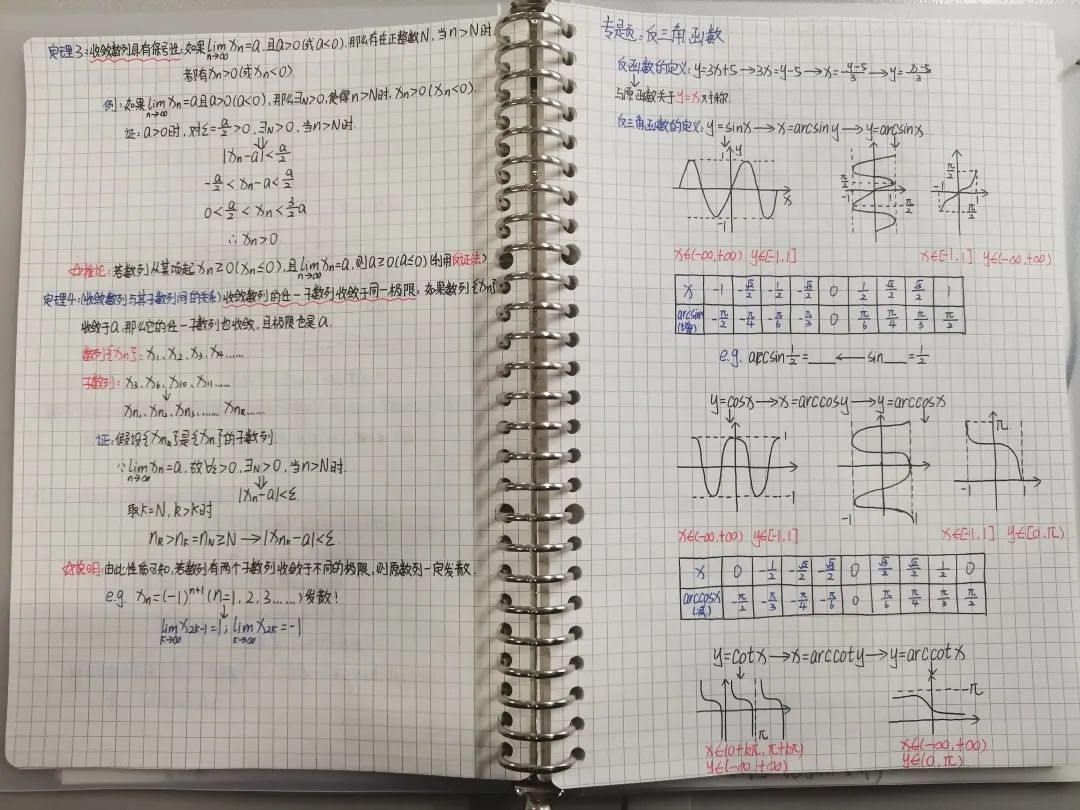 定理3:收敛数列具有保号性:如果lim xn=a,且a>0(或a<0),那么存在正整数N,当n>N时
n→∞
都有xn>0(或xn<0)
例:如果lim xn=a且a>0(a<0),那么∃N>0,使得n>N时,xn>0(xn<0).
n→∞
证:a>0时,对ε=a/2>0,∃N>0,当n>N时.
|xn-a|<a/2
-a/2<xn-a<a/2
0<a/2<xn<3/2a
∴xn>0
☆推论:若数列从某项起xn≥0(xn≤0),且lim xn=a,则a≥0(a≤0)(利用反证法)
n→∞
定理4:(收敛数列与其子数列间的关系)收敛数列的任一子数列收敛于同一极限:如果数列{xn}
收敛于a,那么它的任一子数列也收敛,且极限也是a.
数列{xn}:x1、x2、x3、x4……
子数列:x3、x6、x10、x11……
xn1、xn2、xn3……xnk……
证:假设{xnk}是{xn}的子数列
∵lim xn=a,故∀ε>0,∃N>0,当n>N时.
n→∞
|xn-a|<ε
取K=N,k>K时
nk>nK=nN≥N→|xnk-a|<ε.
☆说明:由此性质可知,若数列有两个子数列收敛于不同的极限,则原数列一定发散.
e.g. xn=(-1)^(n+1)(n=1,2,3……)发散!
lim x2k-1=1;lim x2k=-1
k→∞ k→∞
专题:反三角函数
反函数的定义:y=3x+5→3x=y-5→x=(y-5)/3→y=(x-5)/3
与原函数关于y=x对称.
反三角函数的定义:y=sinx→x=arcsiny→y=arcsinx
1 y x -1
π/2 -1 1 -π/2
π/2 -1 1 -π/2
x∈(-∞,+∞) y∈[-1,1] x∈[-1,1] y∈(-∞,+∞)
x -1 -√3/2 -1/2 -√3/2 0 1/2 √2/2 √3/2 1
arcsinx(增) -π/2 -π/4 -π/6 -π/3 0 π/6 π/4 π/3 π/2
e.g. arcsin1/2=___←sin___=1/2
y=cosx→x=arccosy→y=arccosx
1 -1
-1 1
π -1 1
x∈(-∞,+∞) y∈[-1,1] x∈[-1,1] y∈[0,π]
x 0 -1/2 -√2/2 -√3/2 0 √3/2 √2/2 1/2 0
arccosx(减) -π/2 -π/3 -π/4 -π/6 0 π/6 π/4 π/3 π/2
y=cotx→x=arccoty→y=arccotx
π
π
x∈(0+kπ,π+kπ) x∈(-∞,+∞)
y∈(-∞,+∞) y∈(0,π)